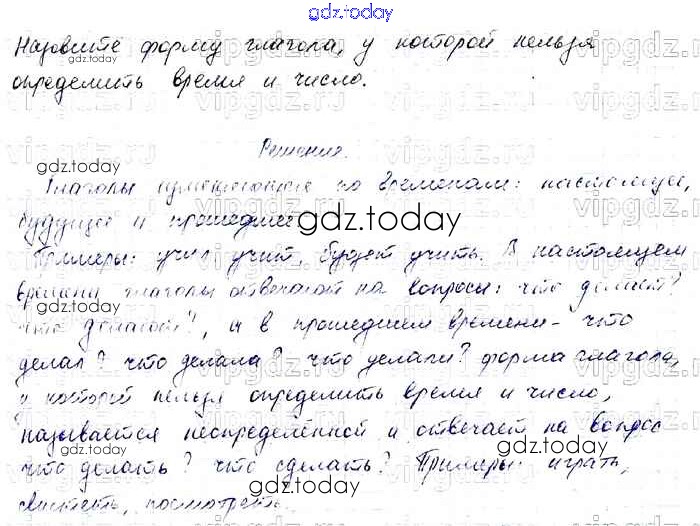 gdz.today
Назовите форму глагола, у которой нельзя
определить время и число.
gdz.today
Решения.
gdz.today
Глаголы изменяются по временам: настоящее,
будущее и прошедшее
gdz.today
Примеры: учил учит, будет учить. В настоящем
времени глаголы отвечают на вопросы: что делает?
что делают?, а в прошедшем времени - что
делал? что делала? что делали? форма глагола,
у которой нельзя определить время и число,
называется неопределённой и отвечает на вопрос
что делать? что сделать? Примеры: играть,
gdz.today
свистеть, посмотреть.